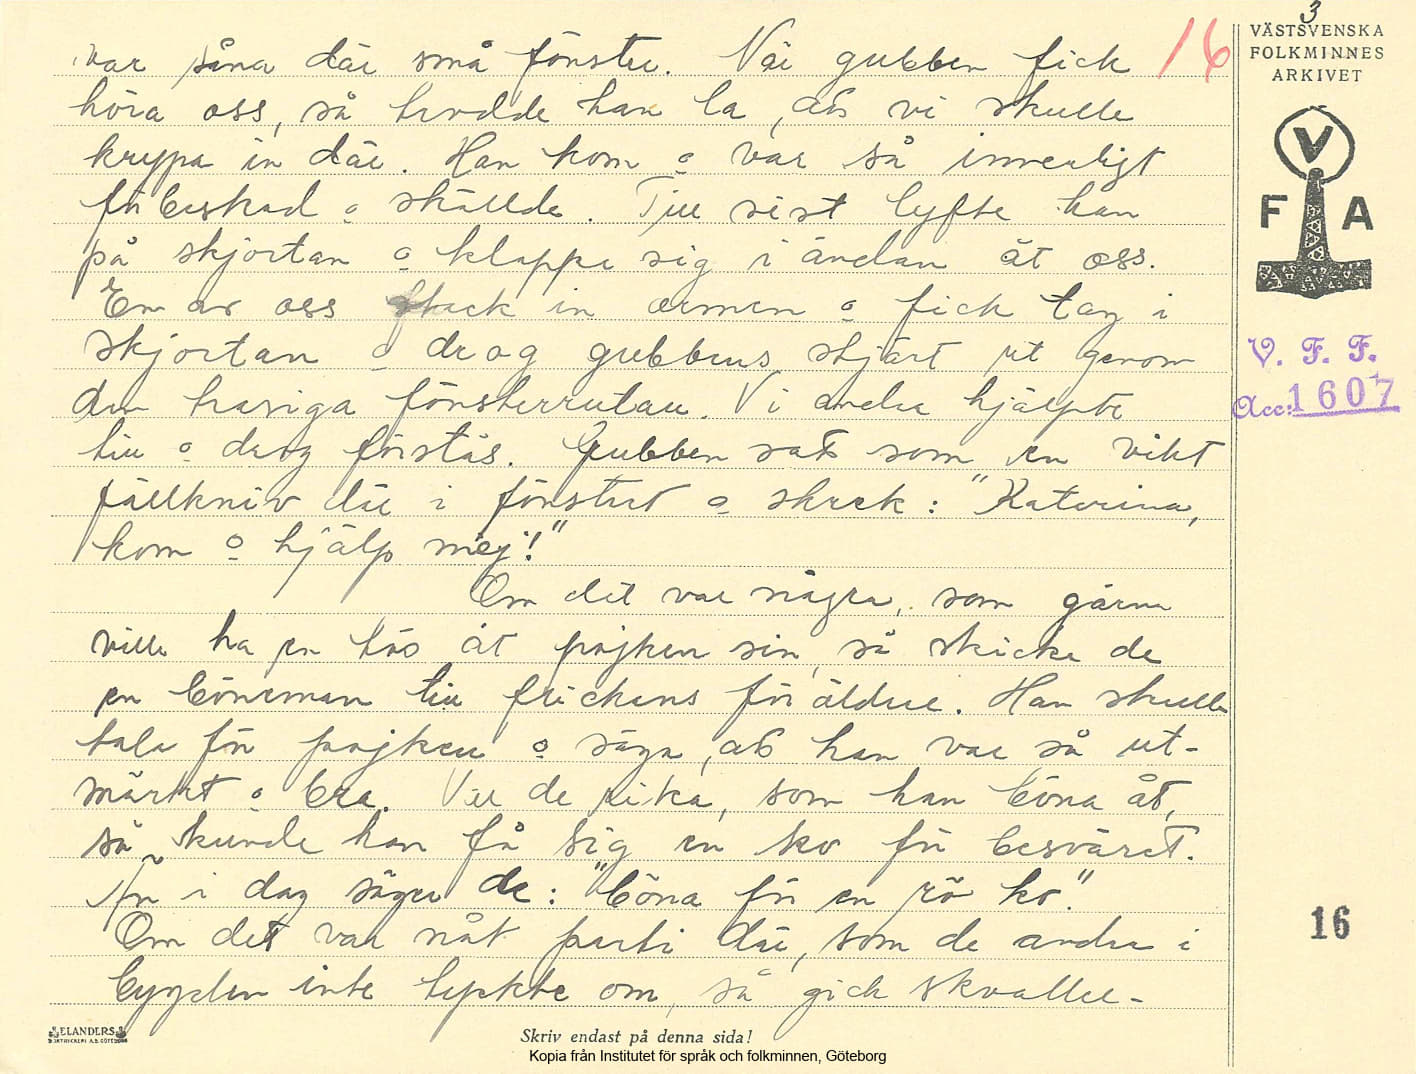 3
VÄSTSVENSKA
FOLKMINNES
ARKIVET
16
var såna där små fönster. När gubben fick
höra oss, så trodde han la, att vi skulle
krypa in där. Han kom o var så innerligt
förbiskad o skällde. Till sist lyfte han
på skjortan o klappa sig i ändan åt oss.
En av oss stack in armen o fick tag i
skjortan o drog gubbens stjärt ut genom
den trasiga fönsterrutan. Vi andra hjälpte
till o drog förstås. Gubben satt som en vikt
fällkniv där i fönstret o skrek: "Katarina,
kom o hjälp mej!"
Om det var några, som gärna
ville ha en tös åt pojken sin, så skicka de
en böneman till flickans föräldrar. Han skulle
tala för pojken o säga, att han var så ut-
märkt o bra. Var de rika, som han böna åt,
så kunde han få sig en ko för besväret.
Än i dag säger de: "böna för en rö ko".
Om det var nåt parti där, som de andra i
bygden inte tyckte om, så gick skvaller-
V
F A
V. F. F.
Acc: 1607
16
ELANDERS
BOKTRYCKERI A.B. GÖTEBORG
Skriv endast på denna sida!
Kopia från Institutet för språk och folkminnen, Göteborg